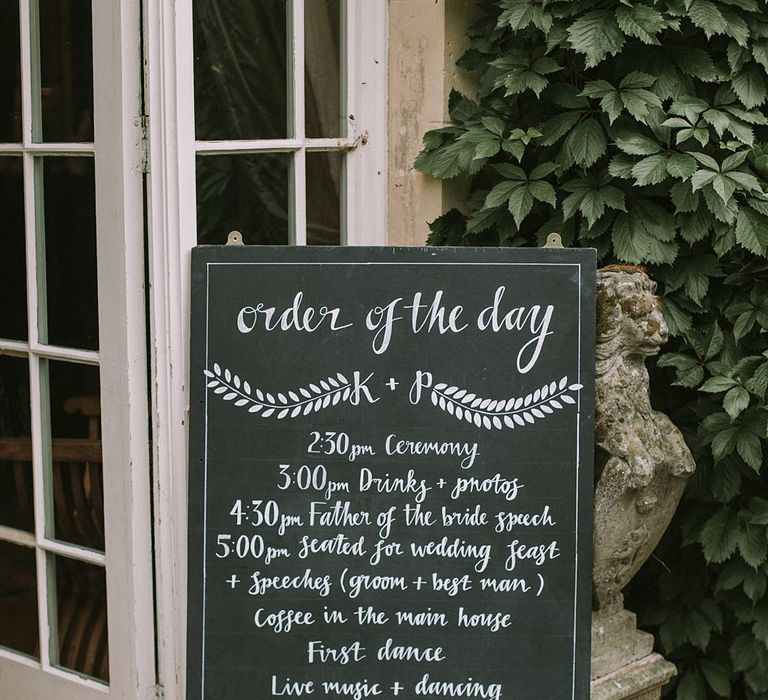 order of the day
K + P
2:30pm Ceremony
3:00pm Drinks + photos
4:30pm Father of the bride speech
5:00pm seated for wedding feast
+ speeches (groom + best man)
Coffee in the main house
First dance
Live music + dancing